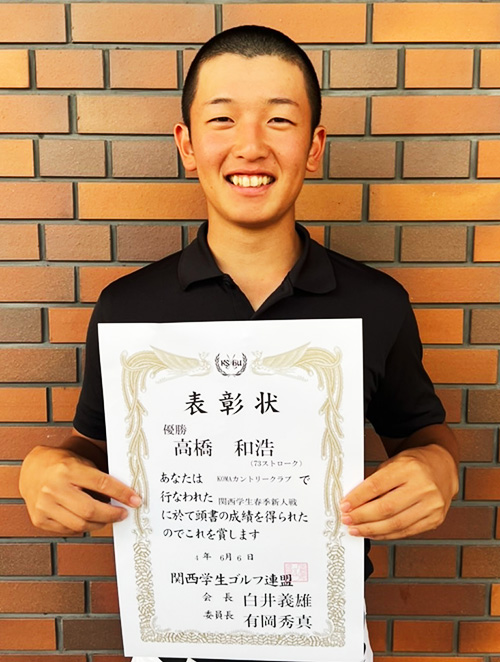 KSGU
表彰状
優勝
高橋 和浩
(73ストローク)
あなたは KOMAカントリークラブ で
行なわれた 関西学生春季新人戦
に於て頭書の成績を得られた
のでこれを賞します
4 年 6月 6 日
関西学生ゴルフ連盟
会長 白井義雄
委員長 有岡秀真